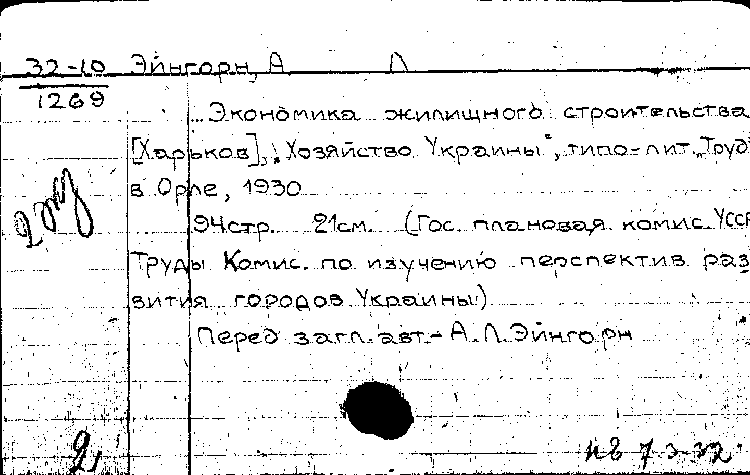 32-10 Эйнгорн, А Л
1269
Экономика жилищного строительства
[Харьков], „Хозяйство Украины", типо-лит. „Труд"
в Орле, 1930
94стр. 21см. (Гос. плановая комис. УССР
Труды Комис. по изучению перспектив раз
вития городов Украины)
Перед загл. авт.- А.Л.Эйнгорн
2
7-3-32